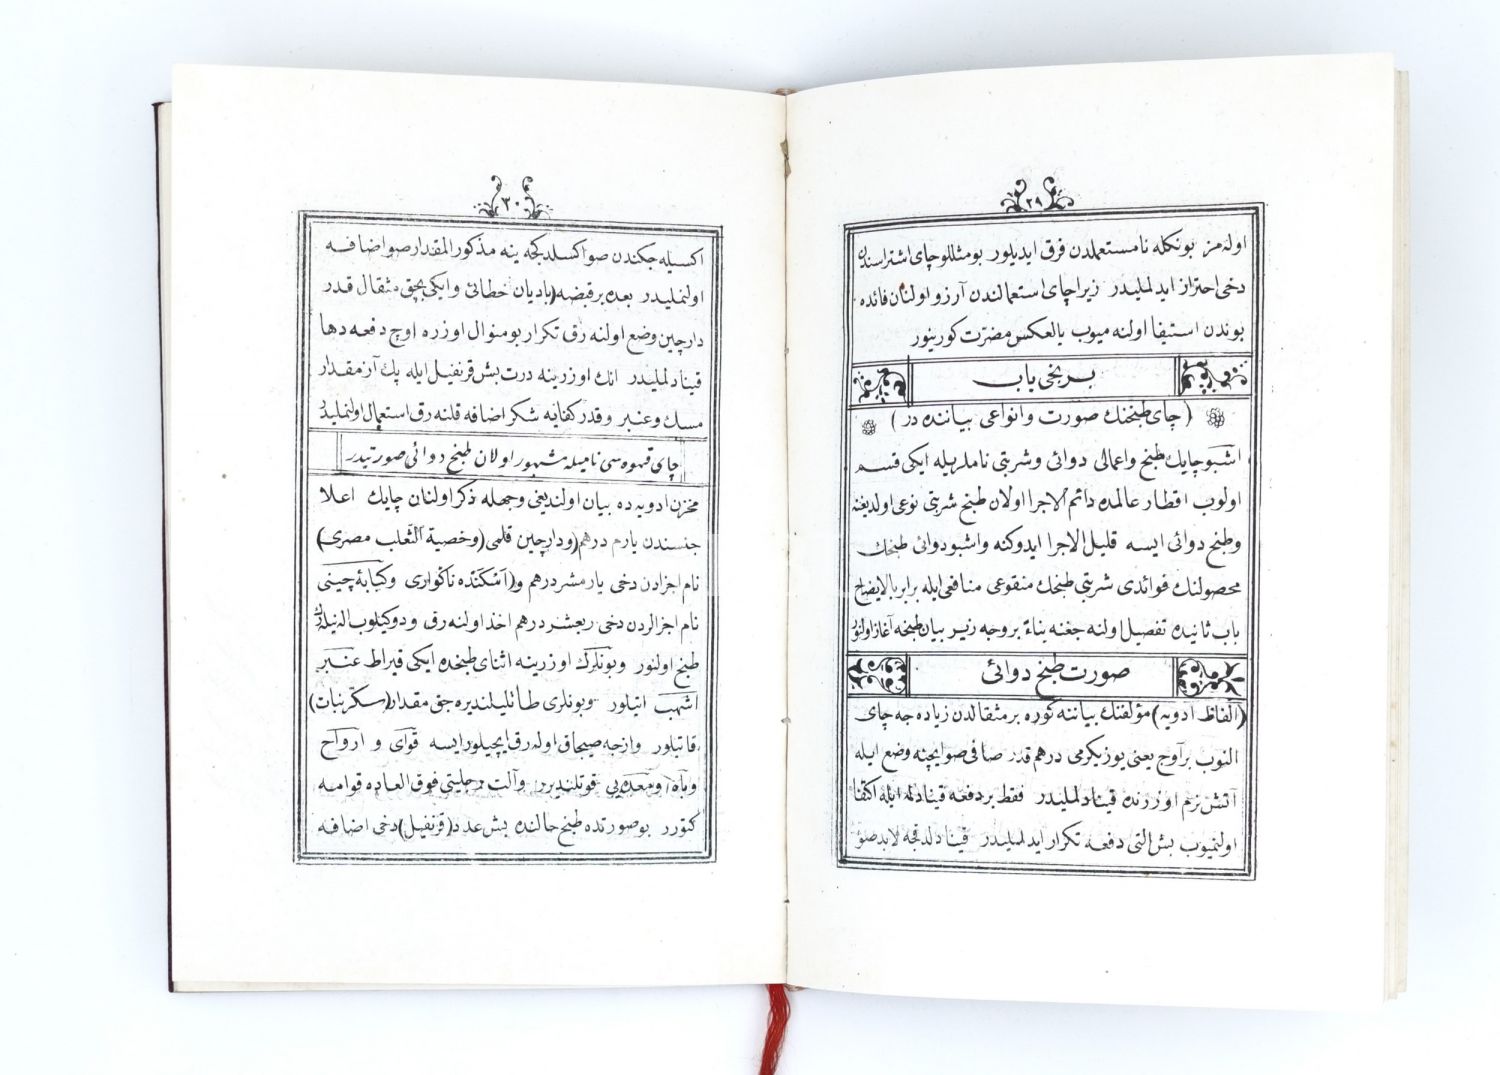 ٢٩
اوله مز بونكله نامستعملدن فرق ايديلور بومثللو چاى اشتراسندن
دخى احتراز ايدلمليدر زيرا چاى استعمالندن آرزو اولنان فائده
بوندن استيفا اولنه ميوب بالعكس مضرت كورينور
برنجى باب
(چاى طبخنك صورت وانواعى بياننده در)
اشبو چايك طبخ واعمالى دوائى وشربتى ناملريله ايكى قسم
اولوب اقطار عالمده دائم الاجرا اولان طبخ شربتى نوعى اولديغنه
وطبخ دوائى ايسه قليل الاجرا ايدوكنه واشبو دوائى طبخك
محصولنك فوائدى شربتى طبخك منقوعى منافعى ايله برابر بالايضاح
باب ثانيده تفصيل اولنه جغنه بناءً بروجه زير بيان طبخه آغاز اولنور
صورت طبخ دوائى
(الفاظ ادويه) مؤلفنك بياننه كوره بر مثقالدن زياده جه چاى
النوب بر آوج يعنى يوز يكرمى درهم قدر صافى صو ايچنه وضع ايله
آتش نرم اوزرنده قينادلمليدر فقط بر دفعه قينادلمه ايله اكتفا
اولنميوب بش التى دفعه تكرار ايدلمليدر قينادلدقجه لابد صو
٣٠
اكسيله جكندن صو اكسلدكجه ينه مذكور المقدار صو اضافه
اولنمليدر بعده بر قبضه (باديان خطائى) وايكى بچق مثقال قدر
دارچين وضع اولنه رق تكرار بو منوال اوزره اوچ دفعه دها
قينادلمليدر انك اوزرينه درت بش قرنفيل ايله پك آز مقدار
مسك وعنبر وقدر كفايه شكر اضافه قلنه رق استعمال اولنمليدر
چاى قهوه سى ناميله مشهور اولان طبخ دوائى صورتيدر
مخزن ادويه ده بيان اولنديغى وجهله ذكر اولنان چايك اعلا
جنسندن يارم درهم (ودارچين قلمى) (وخصية الثعلب مصرى)
نام اجزادن دخى يارمشر درهم و(آشكنده ناكوارى وكبابۀ چينى)
نام اجزالردن دخى ربعشر درهم اخذ اولنه رق ودوكيلوب النيلدن
طبخ اولنور وبونلرك اوزرينه اثناى طبخده ايكى قيراط عنبر
اشهب اتيلور وبونلرى طاتليلنديره جق مقدار (سكر نبات)
قاتيلور وازجه صيجاق اوله رق ايچيلور ايسه قواى و ارواح
وباه ومعده يى قوتلنديرر وآلت رجليتى فوق العاده قوامه
كتورر بو صورتده طبخ حالنده بش عدد (قرنفيل) دخى اضافه